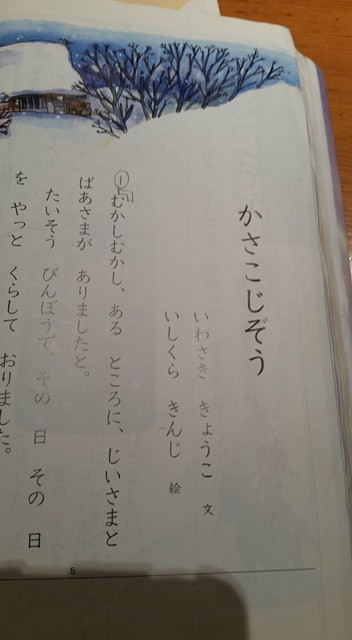 かさこじぞう
いわさき きょうこ 文
いしくら きんじ 絵
① むかしむかし、ある ところに、じいさまと
ばあさまが ありましたと。
たいそう びんぼうで、その 日 その 日
を やっと くらして おりました。
5